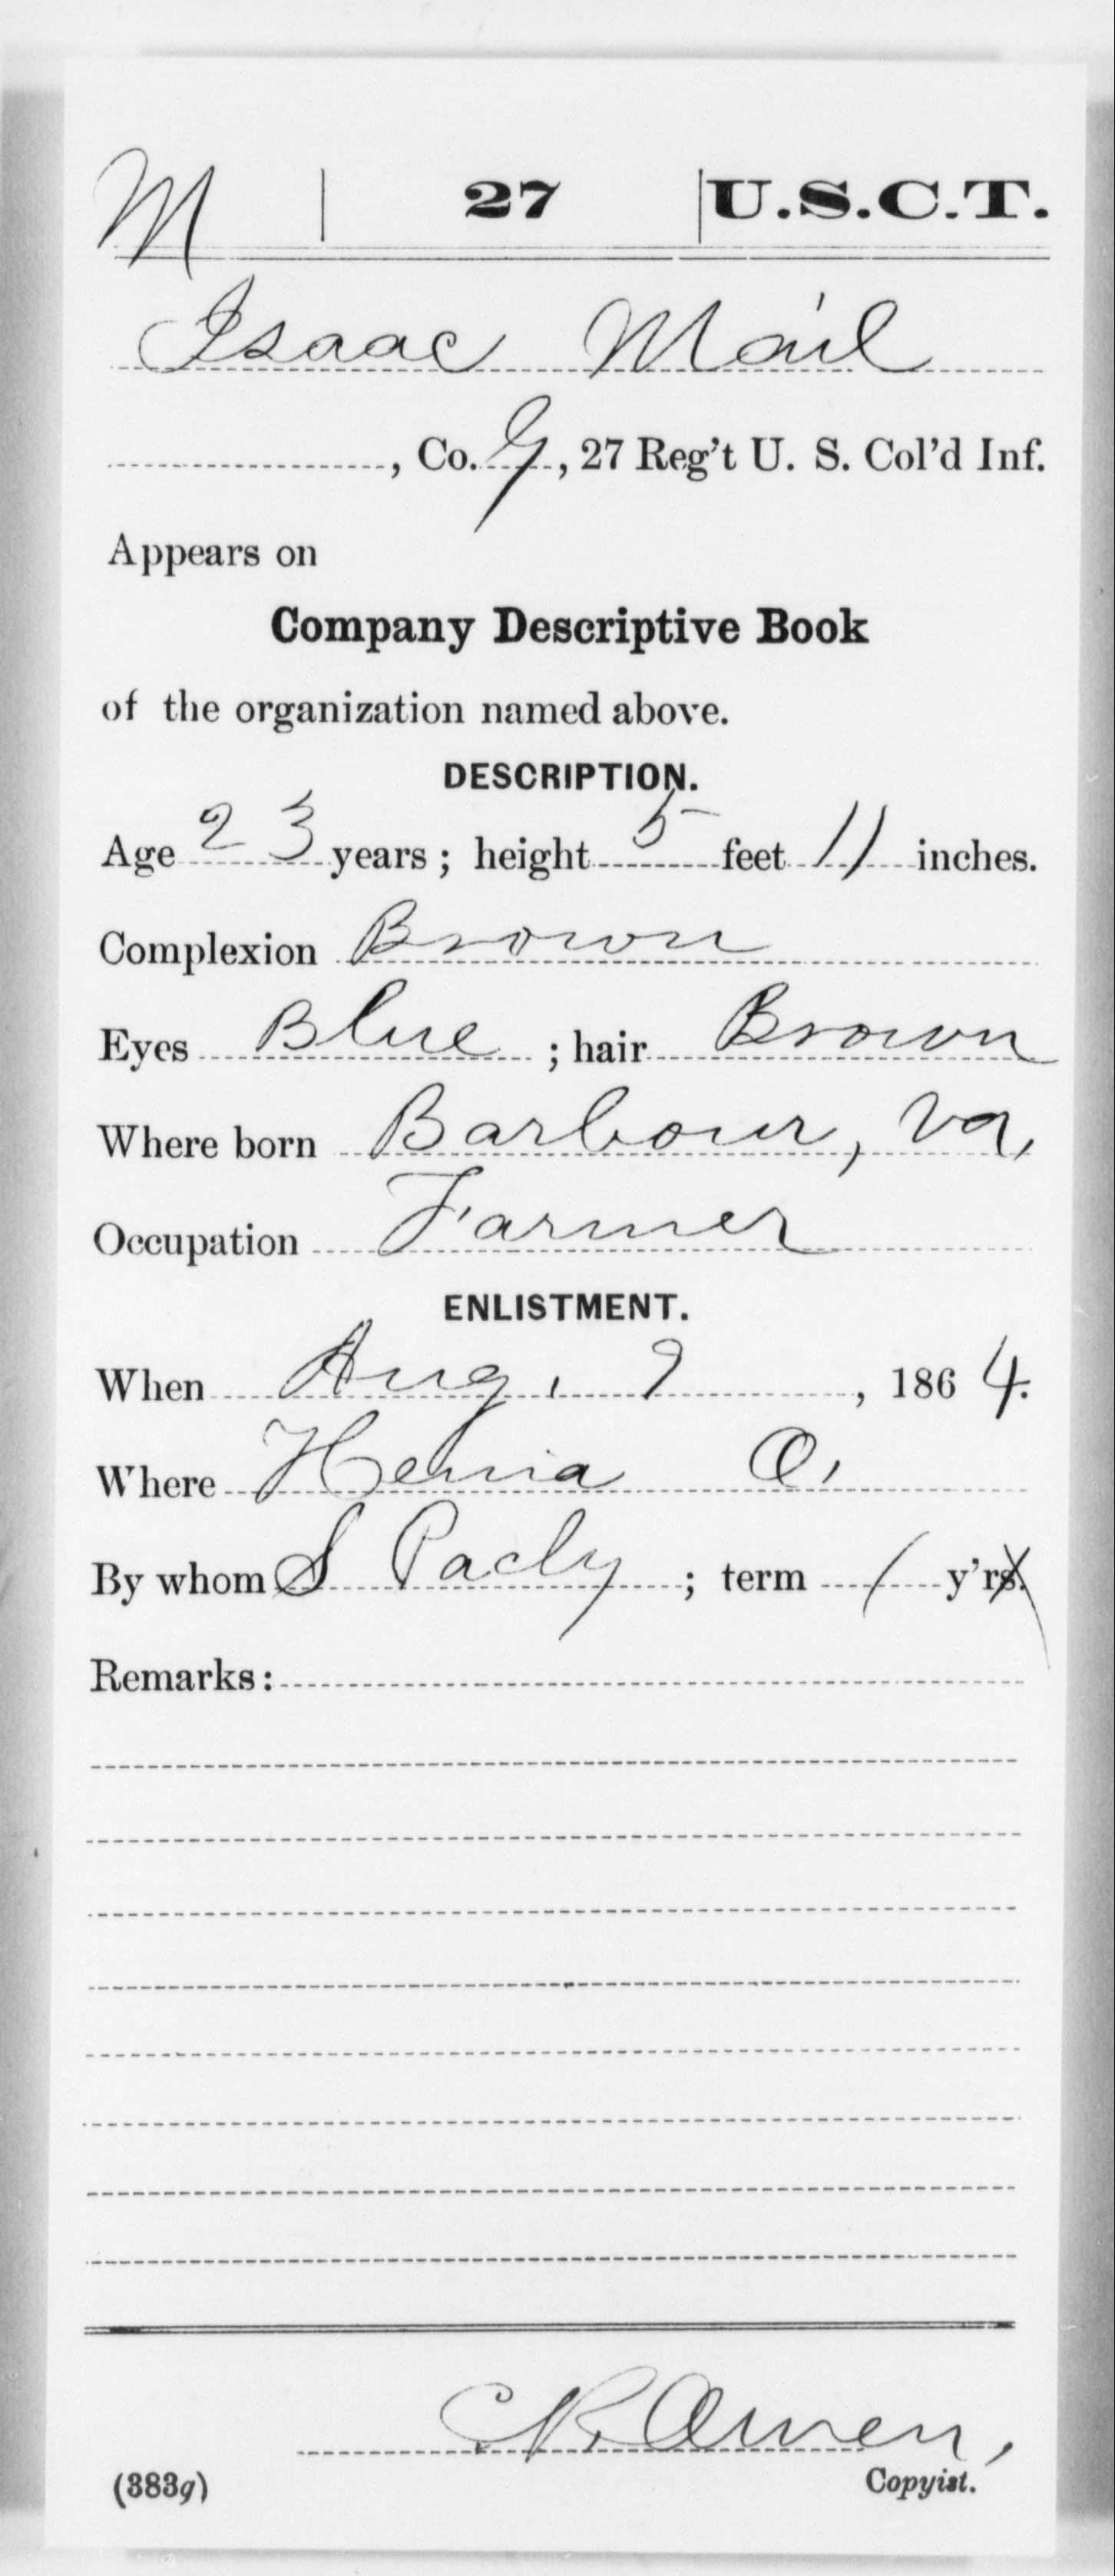 M | 27 | U.S.C.T.
Isaac Mail
, Co. G, 27 Reg't U. S. Col'd Inf.
Appears on
Company Descriptive Book
of the organization named above.
DESCRIPTION.
Age 23 years; height 5 feet 11 inches.
Complexion Brown
Eyes Blue; hair Brown
Where born Barbour, Va,
Occupation Farmer
ENLISTMENT.
When Aug. 9, 1864.
Where Henia O.
By whom S Pacly; term 1 y'rs.
Remarks:
C R Owen,
(383g) Copyist.